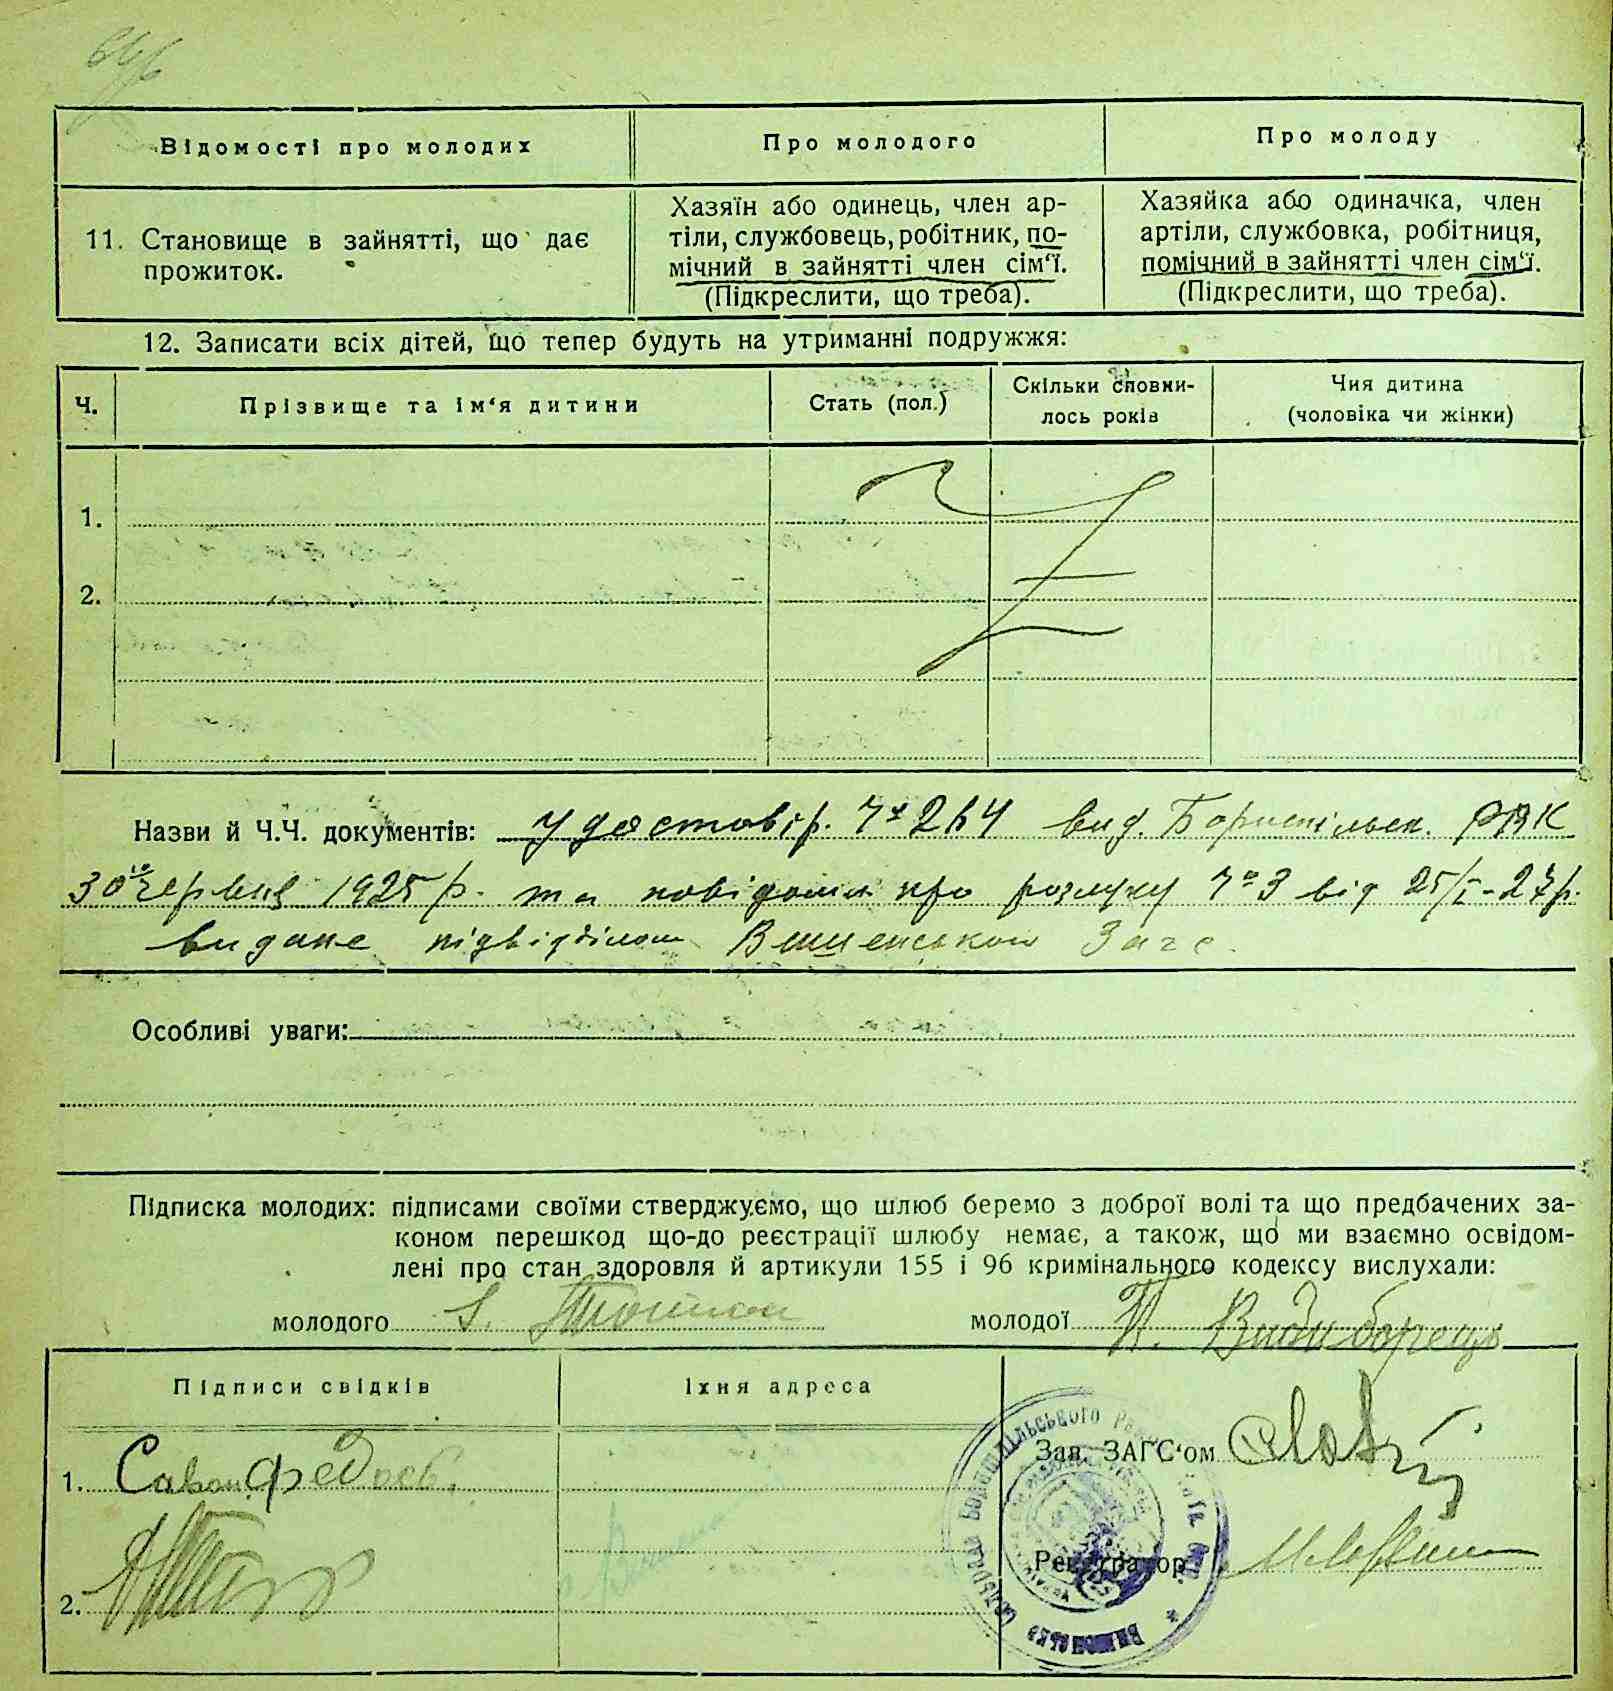 Відомості про молодих
Про молодого
Про молоду
11. Становище в зайнятті, що дає
прожиток.
Хазяїн або одинець, член ар-
тіли, службовець, робітник, по-
мічний в зайнятті член сім'ї.
(Підкреслити, що треба).
Хазяйка або одиначка, член
артіли, службовка, робітниця,
помічний в зайнятті член сім'ї.
(Підкреслити, що треба).
12. Записати всіх дітей, що тепер будуть на утриманні подружжя:
Ч.
Прізвище та ім'я дитини
Стать (пол.)
Скільки сповни-
лось років
Чия дитина
(чоловіка чи жінки)
1.
2.
Назви й Ч.Ч. документів: удостовір. вид. Бориспільск. РВК
30го червня 1925 р. та повідомл про розлуку Чо 3 від 25/I-27р.
видане підвідділом Вишенським Загс.
Особливі уваги:
Підписка молодих: підписами своїми стверджуємо, що шлюб беремо з доброї волі та що предбачених за-
коном перешкод що-до реєстрації шлюбу немає, а також, що ми взаємно освідом-
лені про стан здоровля й артикули 155 і 96 кримінального кодексу вислухали:
молодого
молодої П. Видиборець
Підписи свідків
Їхня адреса
1. Савон Федось.
2.
Зав. ЗАГС'ом
Реєстратор